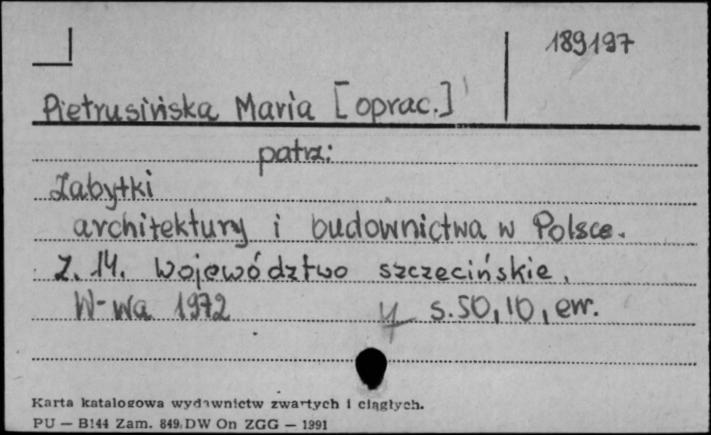 189197
Pietrusińska Maria [oprac.]
patrz:
Zabytki
architektury i budownictwa w Polsce.
Z. 14. Województwo szczecińskie.
W-wa 1972 4 s. 50, 10, err.
Karta katalogowa wydawnictw zwartych i ciągłych.
PU — B144 Zam. 849. DW On ZGG — 1991